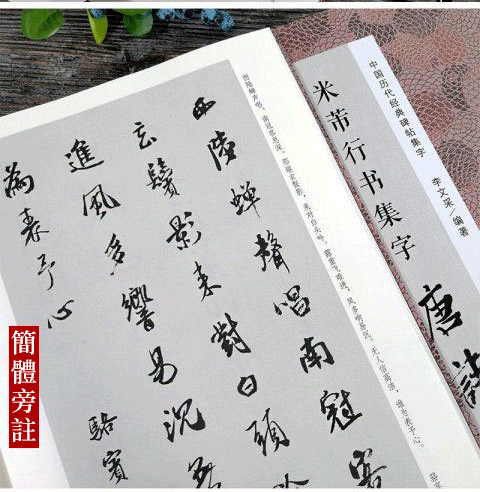 中国历代经典碑帖集字
李文采/编著
米芾行书集字
唐詩
西陆蝉声唱，南冠客思深。那堪玄鬓影，来对白头吟。露重飞难进，风多响易沉。无人信高洁，谁为表予心。
西陸蟬聲唱南冠客
玄鬢影来對白頭吟
進風多響易沉無
為表予心
駱賓
簡體旁註